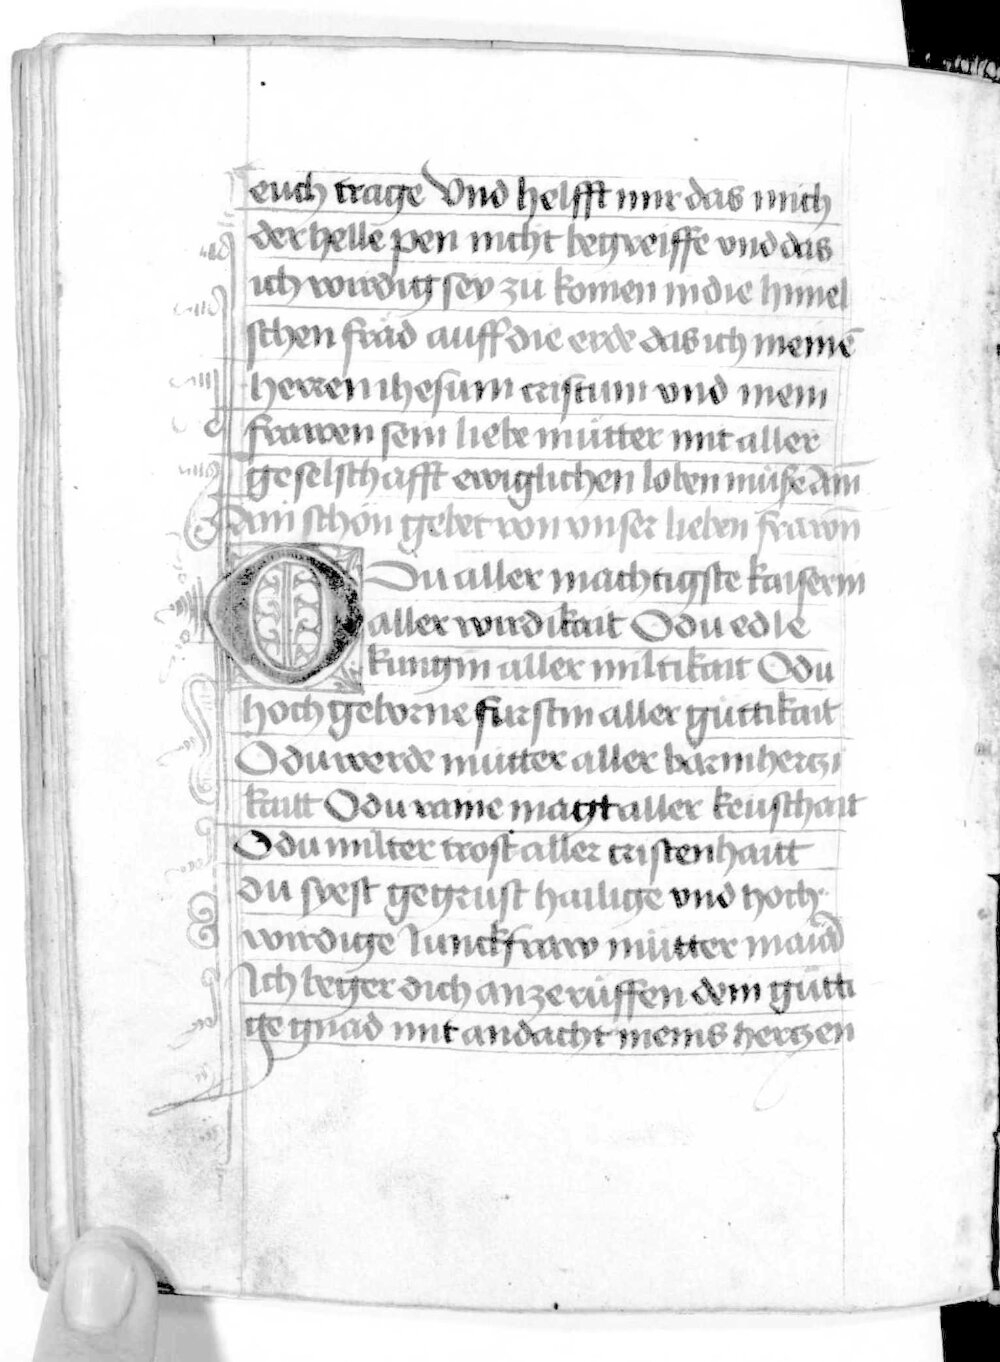 euch trage Vnd helfft mir das mich
der helle pen nicht begreiffe vnd das
ich wirdig sey zu komen in die himel
schen frād auff die erde das ich meinē
herren ihesum cristum vnd mein
frawen sein liebe mütter mit aller
geselschafft ewiglichen loben müse Am̄
Ain schön gebet von vnser lieben frawn̄
O Du aller machtigste kaiserin
aller wirdikait O du edle
kungin aller miltikait O du
hoch geborne furstin aller güttikait
O du werde mutter aller barmhertzi
kaitt O du raine magt aller keuschait
O du milter trost aller cristenhaitt
du syest gegrust hailige vnd hoch
wirdige Junckfraw mütter maria
Ich beger dich anzerüffen dem gütti
ge gnad mit andacht meins hertzen